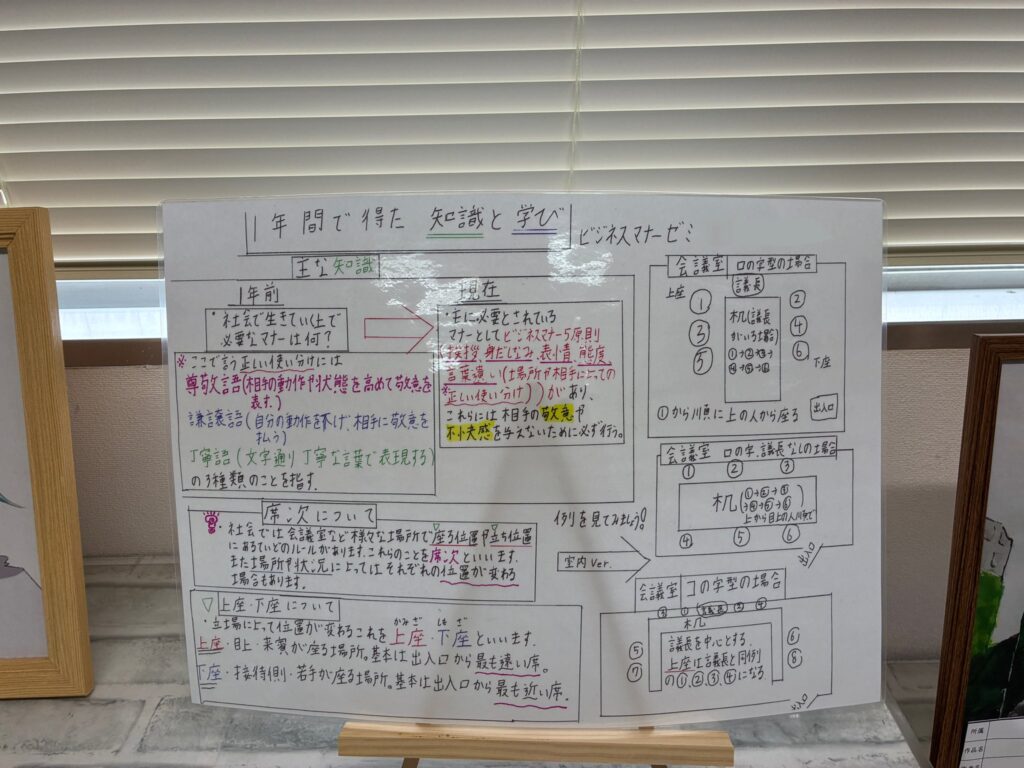 1年間で得た 知識と学び
ビジネスマナーゼミ
主な知識
1年前
・社会で生きていく上で
必要なマナーは何？
現在
・主に必要とされている
マナーとしてビジネスマナー5原則
挨拶、身だしなみ、表情、態度
言葉遣い(場所や相手によっての
※正しい使い分け))があり、
これらには相手の敬意や
不快感を与えないために必ず行う。
※ここで言う正しい使い分けには
尊敬語(相手の動作や状態を高めて敬意を
表す.)
謙譲語(自分の動作を下げ、相手に敬意を
払う)
丁寧語(文字通り丁寧な言葉で表現する)
の3種類のことを指す.
席次について
・社会では会議室など様々な場所で座る位置や立ち位置
にあるていどのルールがあります.これらのことを席次といいます.
また場所や状況によってはそれぞれの位置が変わる
場合もあります.
例を見てみましょう!
室内 ver.
▽上座・下座について
・立場によって位置が変わるこれを上座・下座といいます.
かみざ
しもざ
上座・目上・来賓が座る場所。基本は出入口から最も遠い席。
下座・接待側・若手が座る場所。基本は出入口から最も近い席.
会議室 ロの字型の場合
議長
上座
①
②
③
④
⑤
⑥
下座
机(議長
がいる場合)
①→②→③→
④→⑤→⑥
①から順に上の人から座る
出入口
会議室 ロの字.議長なしの場合
①
②
③
机
(①→②→③
→④→⑤→⑥
上から目上の人順で
④
⑤
⑥
出入口
会議室 コの字型の場合
③
①
議長
②
④
机
議長を中心とする.
上座は議長と同列
の①、②、③、④になる
⑤
⑦
⑥
⑧
出入口
所属
作品名